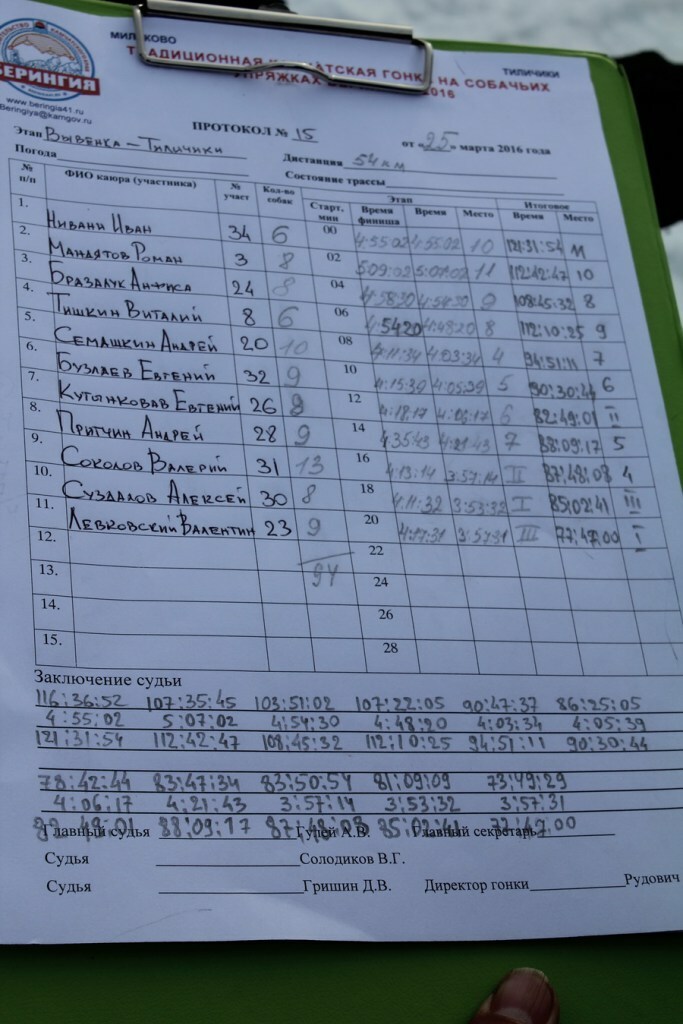 БЕРИНГИЯ
www.beringia41.ru
Beringiya@kamgov.ru
МИЛЬКОВО
ТИЛИЧИКИ
ТРАДИЦИОННАЯ КАМЧАТСКАЯ ГОНКА НА СОБАЧЬИХ
УПРЯЖКАХ 2016
ПРОТОКОЛ № 15
от «25» марта 2016 года
Этап Вывенка – Тиличики
Дистанция 54 км
Погода
Состояние трассы
№ п/п ФИО каюра (участника) № участ Кол-во собак Старт, мин Этап Итоговое
Время финиша Время Место Время Место
1. Нивани Иван 34 6 00 4:55 02 4:55 02 10 121:31:54 11
2. Мандятов Роман 3 8 02 5:09:02 5:07:02 11 112:42:47 10
3. Браздлук Анфиса 24 8 04 4:58:30 4:54:30 9 108:45:32 8
4. Тишкин Виталий 8 6 06 4:54 20 4:48:20 8 112:10:25 9
5. Семашкин Андрей 20 10 08 4:11:34 4:03:34 4 94:51:11 7
6. Бузлаев Евгений 32 9 10 4:15:39 4:05:39 5 90:30:44 6
7. Кутынковав Евгений 26 8 12 4:18:17 4:06:17 6 82:49:01 II
8. Притчин Андрей 28 9 14 4:35:43 4:21:43 7 88:09:17 5
9. Соколов Валерий 31 13 16 4:13:14 3:57:14 II 87:48:08 4
10. Суздалов Алексей 30 8 18 4:11:32 3:53:32 I 85:02:41 III
11. Левковский Валентин 23 9 20 4:17:31 3:57:31 III 77:47:00 I
12. 22
13. 94 24
14. 26
15. 28
Заключение судьи
116:36:52 107:35:45 103:51:02 107:22:05 90:47:37 86:25:05
4:55:02 5:07:02 4:54:30 4:48:20 4:03:34 4:05:39
121:31:54 112:42:47 108:45:32 112:10:25 94:51:11 90:30:44
78:42:44 83:47:34 83:50:54 81:09:09 73:49:29
4:06:17 4:21:43 3:57:14 3:53:32 3:57:31
82:49:01 88:09:17 87:48:08 85:02:41 77:47:00
Главный судья Гулей А.В. Главный секретарь
Судья Солодиков В.Г.
Судья Гришин Д.В. Директор гонки Рудович